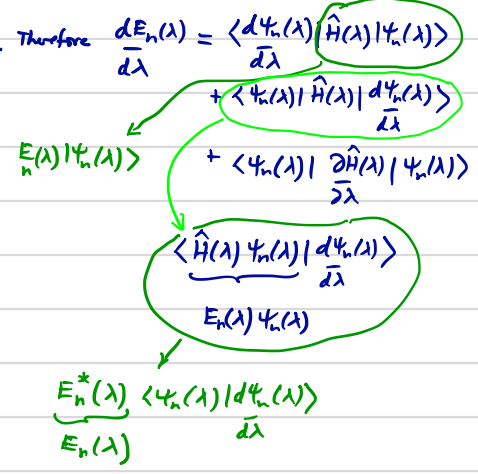 . Therefore dEₙ(λ)/dλ = ⟨dψₙ(λ)/dλ|Ĥ(λ)|ψₙ(λ)⟩
+ ⟨ψₙ(λ)|Ĥ(λ)|dψₙ(λ)/dλ⟩
Eₙ(λ)|ψₙ(λ)⟩
+ ⟨ψₙ(λ)|∂Ĥ(λ)/∂λ|ψₙ(λ)⟩
⟨Ĥ(λ)ψₙ(λ)|dψₙ(λ)/dλ⟩
Eₙ(λ)ψₙ(λ)
Eₙ*(λ)⟨ψₙ(λ)|dψₙ(λ)/dλ⟩
Eₙ(λ)